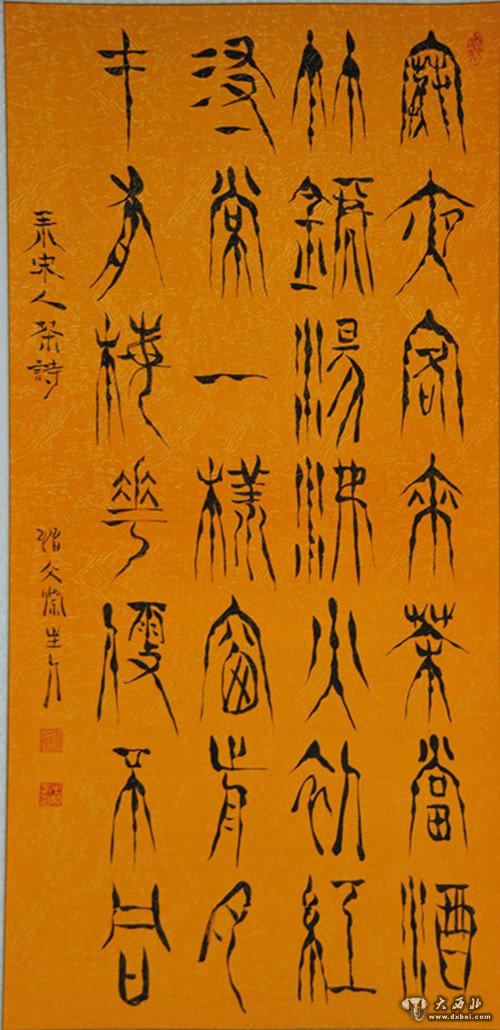 寒夜客來茶當酒
竹鑪湯沸火初紅
尋常一樣窗前月
才有梅花便不同
宋人茶詩
大西北
www.dxbei.com